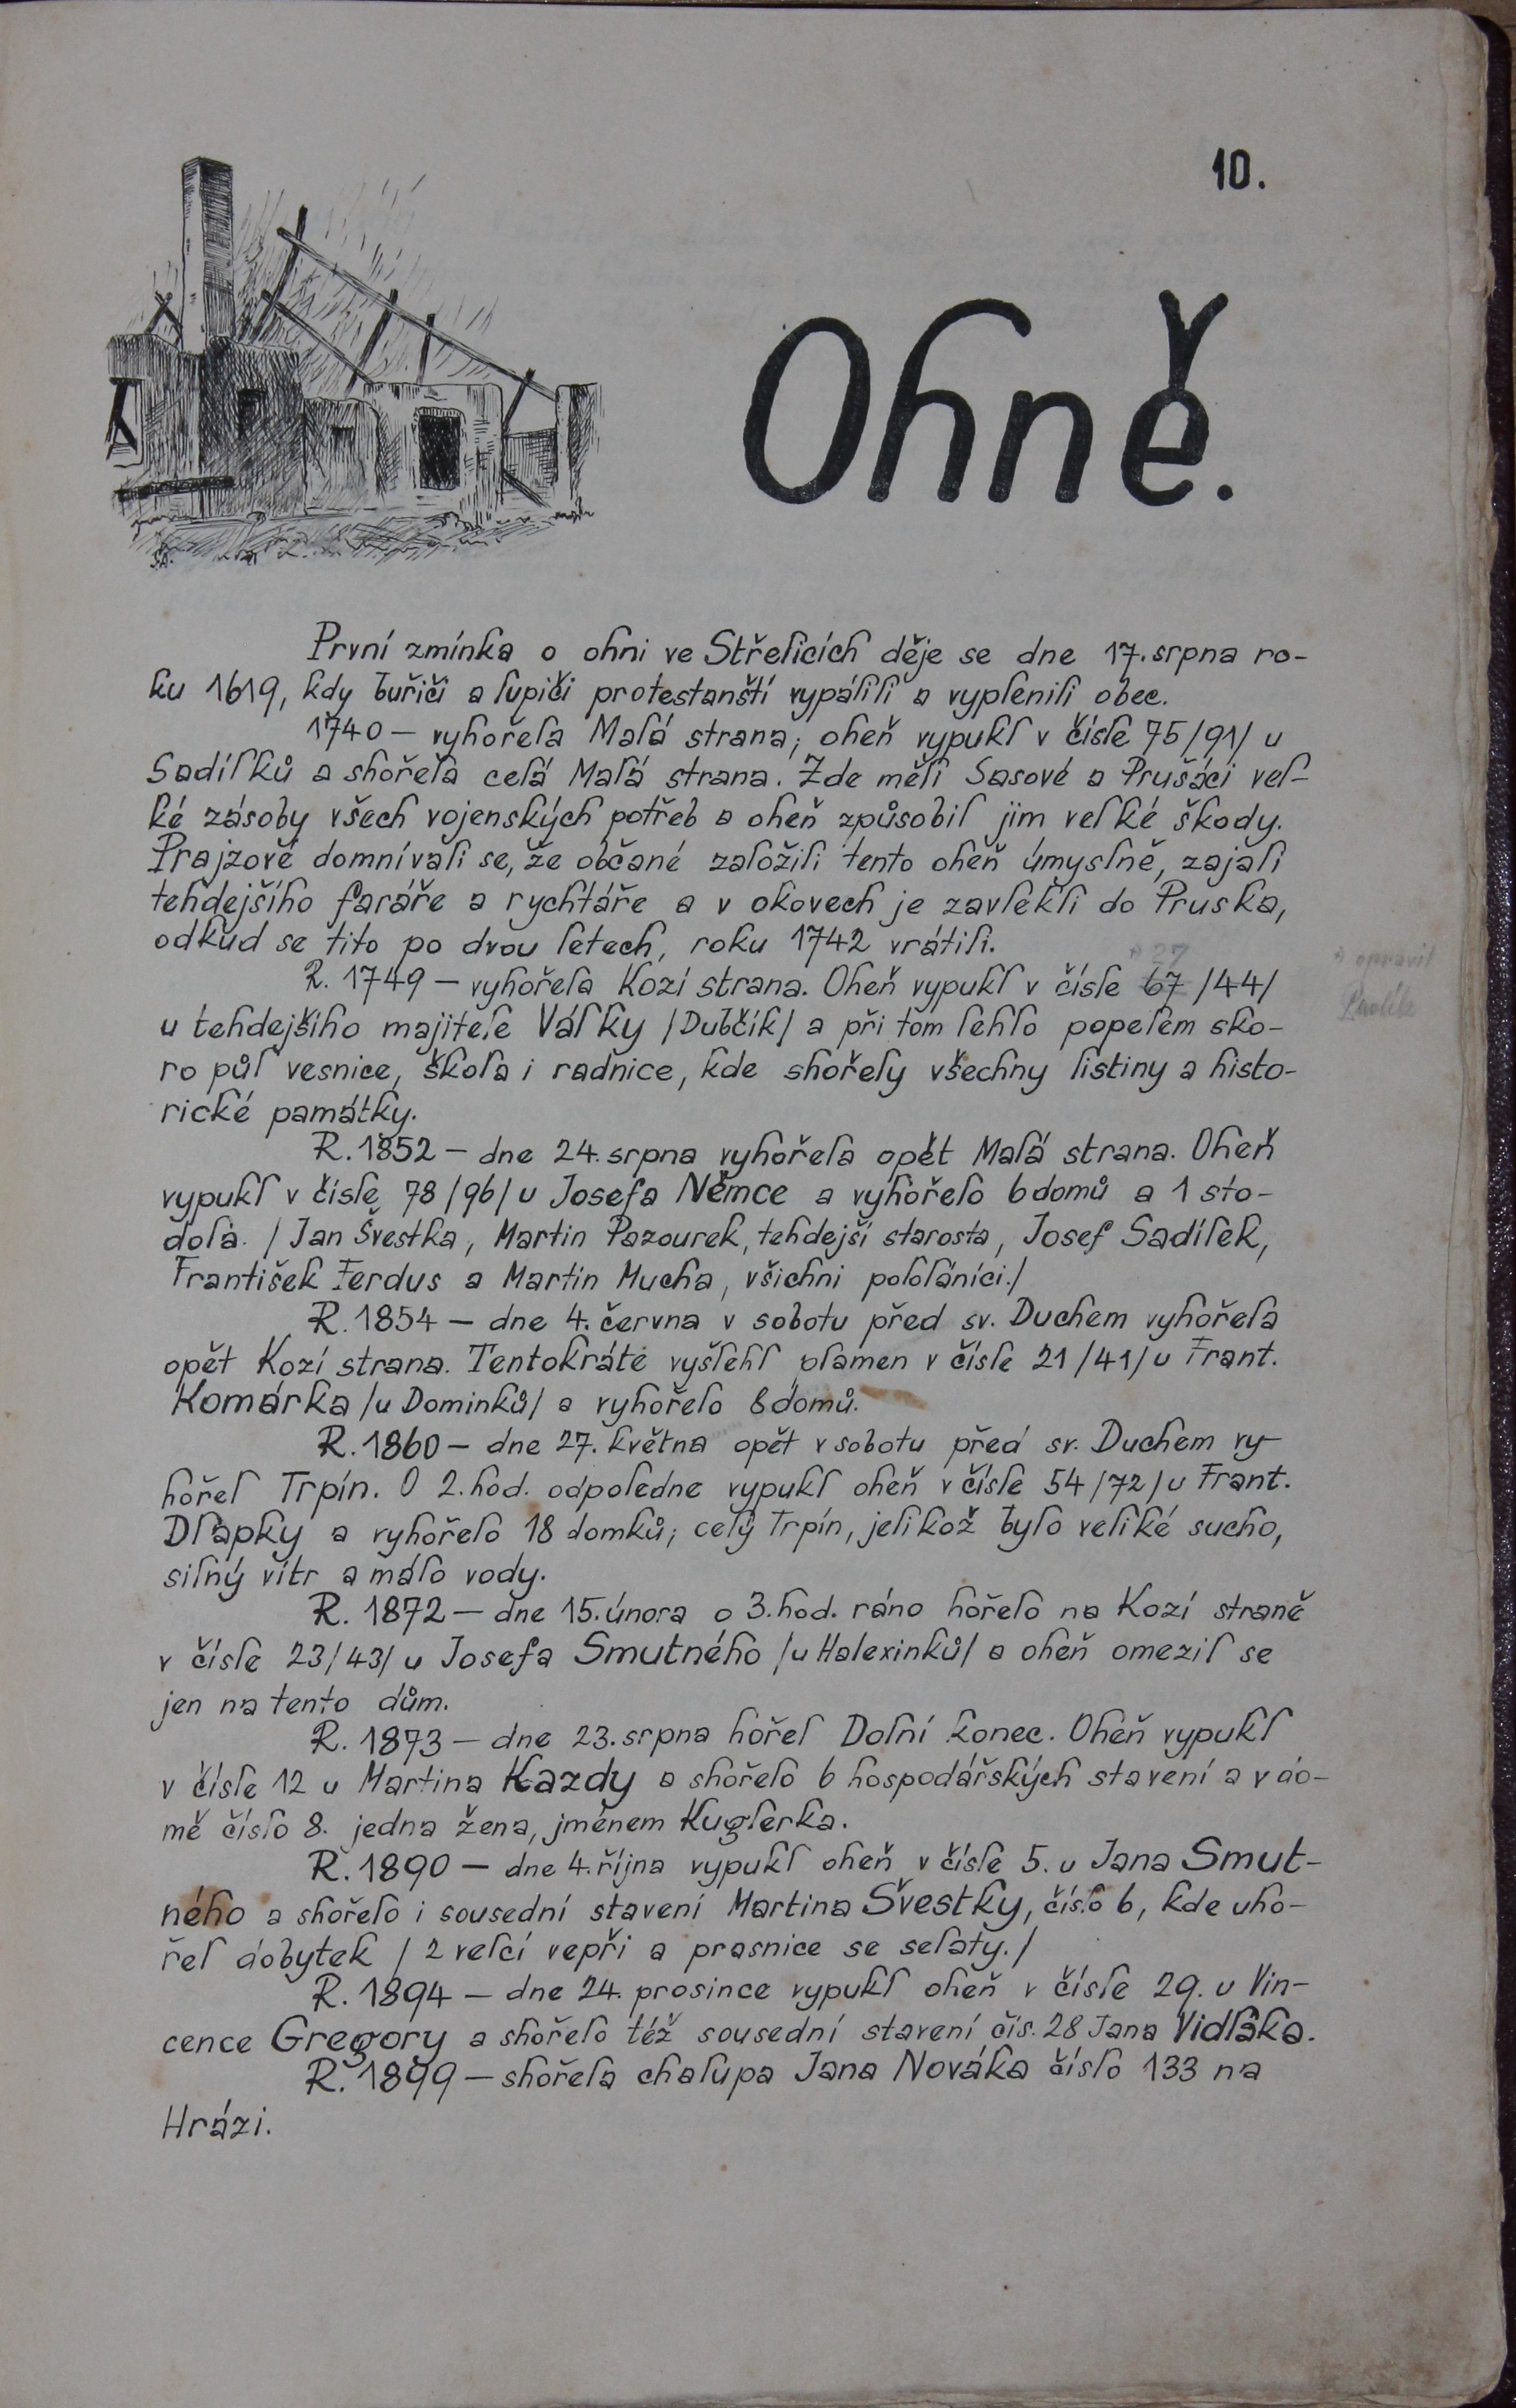 10.
Ohně.
První zmínka o ohni ve Střelicích děje se dne 17. srpna ro-
ku 1619, kdy buřiči a lupiči protestanští vypálili a vyplenili obec.
1740 — vyhořela Malá strana; oheň vypukl v čísle 75/91/ u
Sadílků a shořela celá Malá strana. Zde měli Sasové a Prušáci vel-
ké zásoby všech vojenských potřeb a oheň způsobil jim velké škody.
Prajzové domnívali se, že občané založili tento oheň úmyslně, zajali
tehdejšího faráře a rychtáře a v okovech je zavlekli do Pruska,
odkud se tito po dvou letech, roku 1742 vrátili.
27
R. 1749 — vyhořela Kozí strana. Oheň vypukl v čísle 67 /44/
opravil
u tehdejšího majitele Války /Dubčík/ a při tom lehlo popelem sko-
ro půl vesnice, škola i radnice, kde shořely všechny listiny a histo-
rické památky.
R. 1852 — dne 24. srpna vyhořela opět Malá strana. Oheň
vypukl v čísle 78/96/ u Josefa Němce a vyhořelo 6 domů a 1 sto-
dola. / Jan Švestka, Martin Pazourek, tehdejší starosta, Josef Sadílek,
František Ferdus a Martin Mucha, všichni pololáníci./
R. 1854 — dne 4. června v sobotu před sv. Duchem vyhořela
opět Kozí strana. Tentokráte vyšlehl plamen v čísle 21/41/ u Frant.
Komárka /u Dominků/ a vyhořelo 8 domů.
R. 1860 — dne 27. května opět v sobotu před sv. Duchem vy-
hořel Trpín. O 2. hod. odpoledne vypukl oheň v čísle 54/72/ u Frant.
Dlapky a vyhořelo 18 domků; celý Trpín, jelikož bylo veliké sucho,
silný vítr a málo vody.
R. 1872 — dne 15. února o 3. hod. ráno hořelo na Kozí straně
v čísle 23/43/ u Josefa Smutného /u Halexinků/ a oheň omezil se
jen na tento dům.
R. 1873 — dne 23. srpna hořel Dolní konec. Oheň vypukl
v čísle 12 u Martina Kazdy a shořelo 6 hospodářských stavení a v do-
mě číslo 8. jedna žena, jménem Kuglerka.
R. 1890 — dne 4. října vypukl oheň v čísle 5. u Jana Smut-
ného a shořelo i sousední stavení Martina Švestky, číslo 6, kde uho-
řel dobytek / 2 velcí vepři a prasnice se selaty./
R. 1894 — dne 24. prosince vypukl oheň v čísle 29. u Vin-
cence Gregory a shořelo též sousední stavení čís. 28 Jana Vidláka.
R. 1899 — shořela chalupa Jana Nováka číslo 133 na
Hrázi.